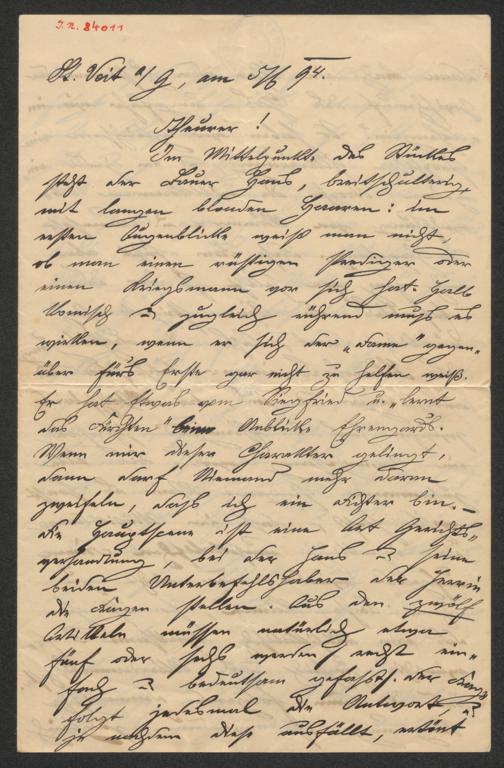 I.N. 84011
St. Veit a/G, am 5/6 94.
Theurer!
Im Mittelpunkte des Stückes
steht der Bauer Hans, breitschulterig,
mit langen blonden Haaren: im
ersten Augenblicke weiß man nicht,
ob man einen rüstigen Prediger oder
einen Kriegsmann vor sich hat. Halb
komisch u zugleich rührend muß es
wirken, wenn er sich der „Dame" gegen-
über fürs Erste gar nicht zu helfen weiß.
Er hat Etwas vom Siegfried u. „lernt
das Fürchten" beim Anblicke Ehrengards.
Wenn mir dieser Charakter gelingt,
dann darf Niemand mehr daran
zweifeln, daß ich ein Dichter bin. –
Die Hauptscene ist eine Art Gerichts-
verhandlung, bei der Hans u seine
beiden Unterbefehlshaber der Herrin
die Fragen stellen. Aus den zwölf
Artikeln müssen natürlich etwa
fünf oder sechs werden, recht ein-
fach u bedeutsam gefasst. Der Frage
folgt jedesmal die Antwort, u
je nachdem diese ausfällt, ertönt